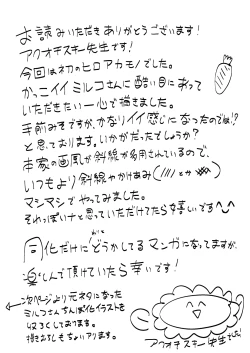 お読みいただきありがとうございます!
アクオチスキー先生です!
今回は初のヒロアカモノでした。
かっこイイミルコさんに酷い目にあって
いただきたい一心で描きました。
手前みそですが、かなりイイ感じになったのでは!?
と思っております。いかがだったでしょうか?
本家の画風が斜線が多用されているので、
いつもより斜線やかけあみ
マシマシでやってみました。
それっぽいナと思っていただけてたら嬉しいです
同化だけにどうかしてるマンガになってますが、
楽しんで頂けていたら幸いです!
次ページより元ネタになった
ミルコさんちんぽ化イラストを
収ろくしております。
描きおろしもちょいアリます。
アクオチスキー先生でした!